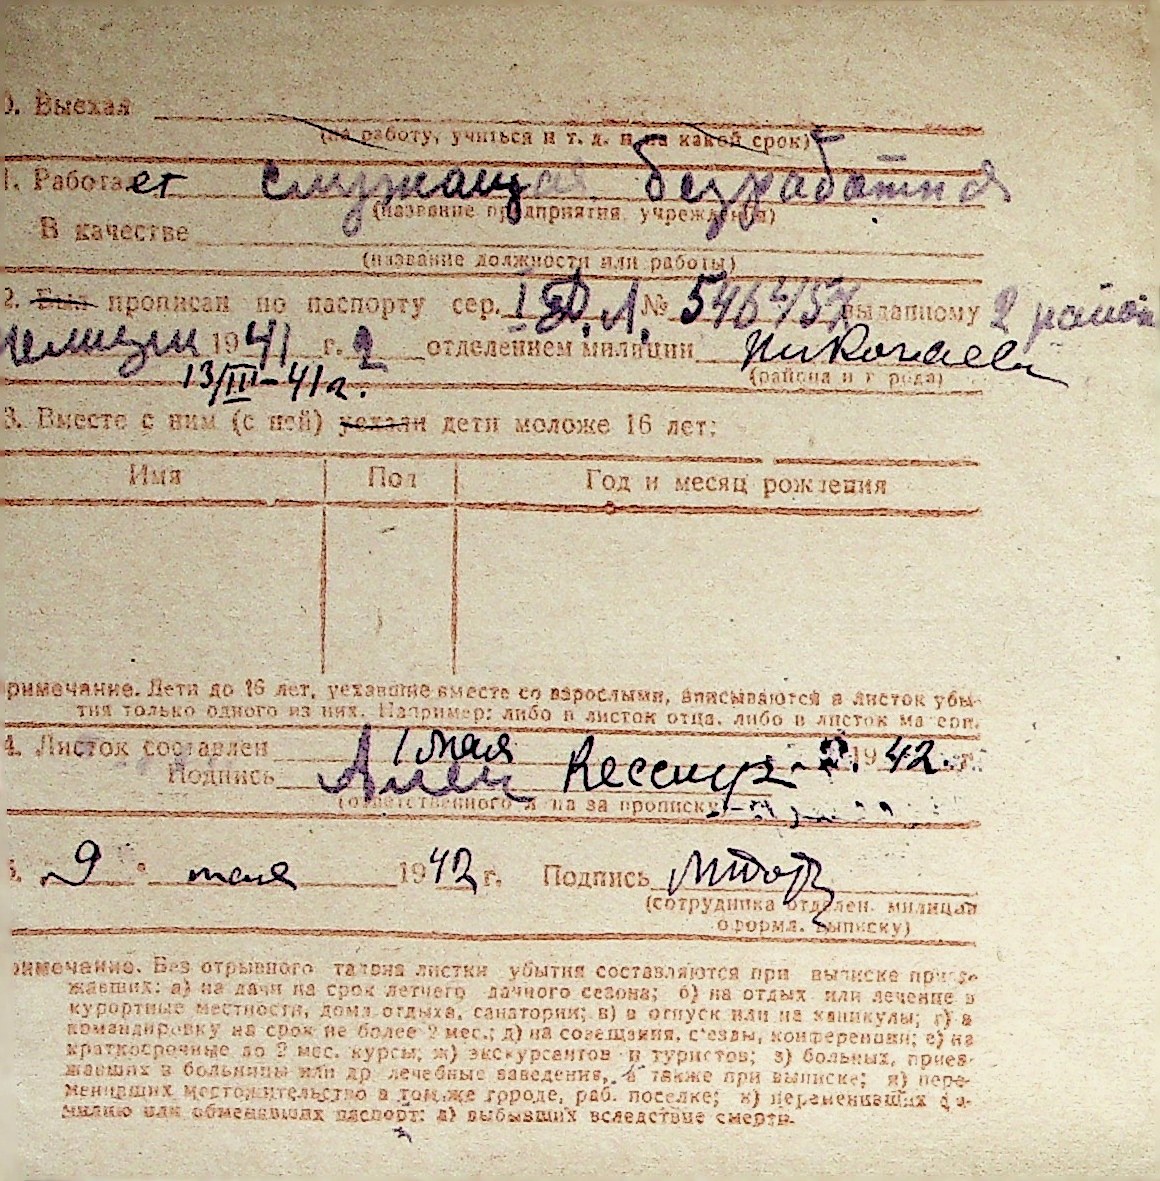 0. Выехал
(на работу, учиться и т. д. и на какой срок)
1. Работает служащая безработная
(название предприятия, учреждения)
В качестве
(название должности или работы)
2. Был прописан по паспорту сер. I № выданному 2 район
милиции 1941 г. 2 отделением милиции Николаев
13/III-41 г.
(района и города)
3. Вместе с ним (с ней) уехали дети моложе 16 лет:
Имя Пол Год и месяц рождения
римечание. Дети до 16 лет, уехавшие вместе со взрослыми, вписываются в листок убы-
тия только одного из них. Например: либо в листок отца, либо в листок матери.
4. Листок составлен 1 мая 1942 г.
Подпись
(ответственного за прописку)
9 мая 1942 г. Подпись
(сотрудника отделен. милиции
оформл. выписку)
римечание. Без отрывного талона листки убытия составляются при выписке приез-
жавших: а) на дачи на срок летнего дачного сезона; б) на отдых или лечение в
курортные местности, дома отдыха, санатории; в) в отпуск или на каникулы; г) в
командировку на срок не более 2 мес.; д) на совещания, с'езды, конференции; е) на
краткосрочные до 2 мес. курсы; ж) экскурсантов и туристов; з) больных, приез-
жавших в больницы или др лечебные заведения, а также при выписке; и) пере-
менивших местожительство в том же городе, раб. поселке; к) переменивших фа-
милию или обменявших паспорт; л) выбывших вследствие смерти.